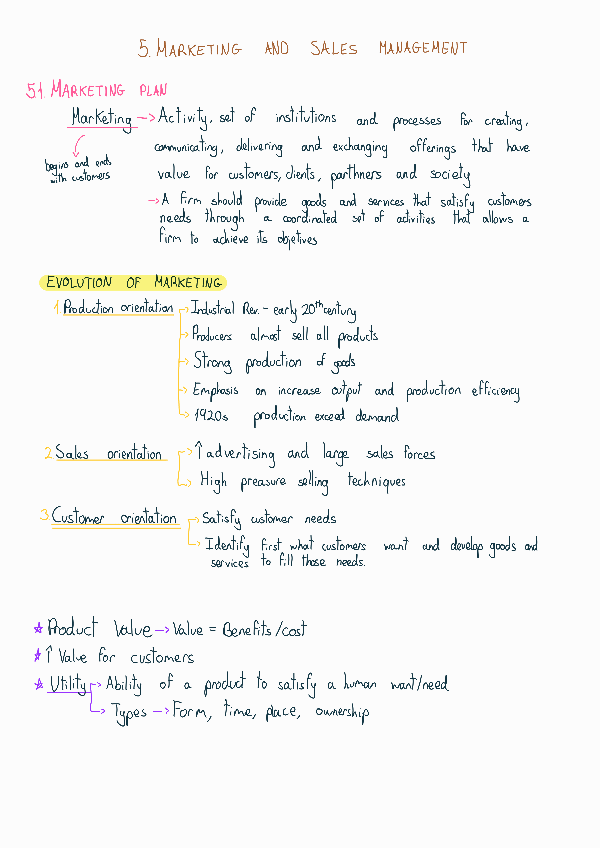 5. MARKETING AND SALES MANAGEMENT
5.1. MARKETING PLAN
Marketing → Activity, set of institutions and processes for creating,
communicating, delivering and exchanging offerings that have
value for customers, clients, parthners and society
begins and ends
with customers
→ A firm should provide goods and services that satisfy customers
needs through a coordinated set of activities that allows a
firm to achieve its objetives
EVOLUTION OF MARKETING
1. Production orientation → Industrial Rev. - early 20th century
→ Producers almost sell all products
→ Strong production of goods
→ Emphasis on increase output and production efficiency
→ 1920s production exceed demand
2. Sales orientation → ↑ advertising and large sales forces
→ High preasure selling techniques
3. Customer orientation → Satisfy customer needs
→ Identify first what customers want and develop goods and
services to fill those needs.
☆ Product Value → Value = Benefits/cost
☆ ↑ Value for customers
☆ Utility → Ability of a product to satisfy a human want/need
→ Types → Form, time, place, ownership